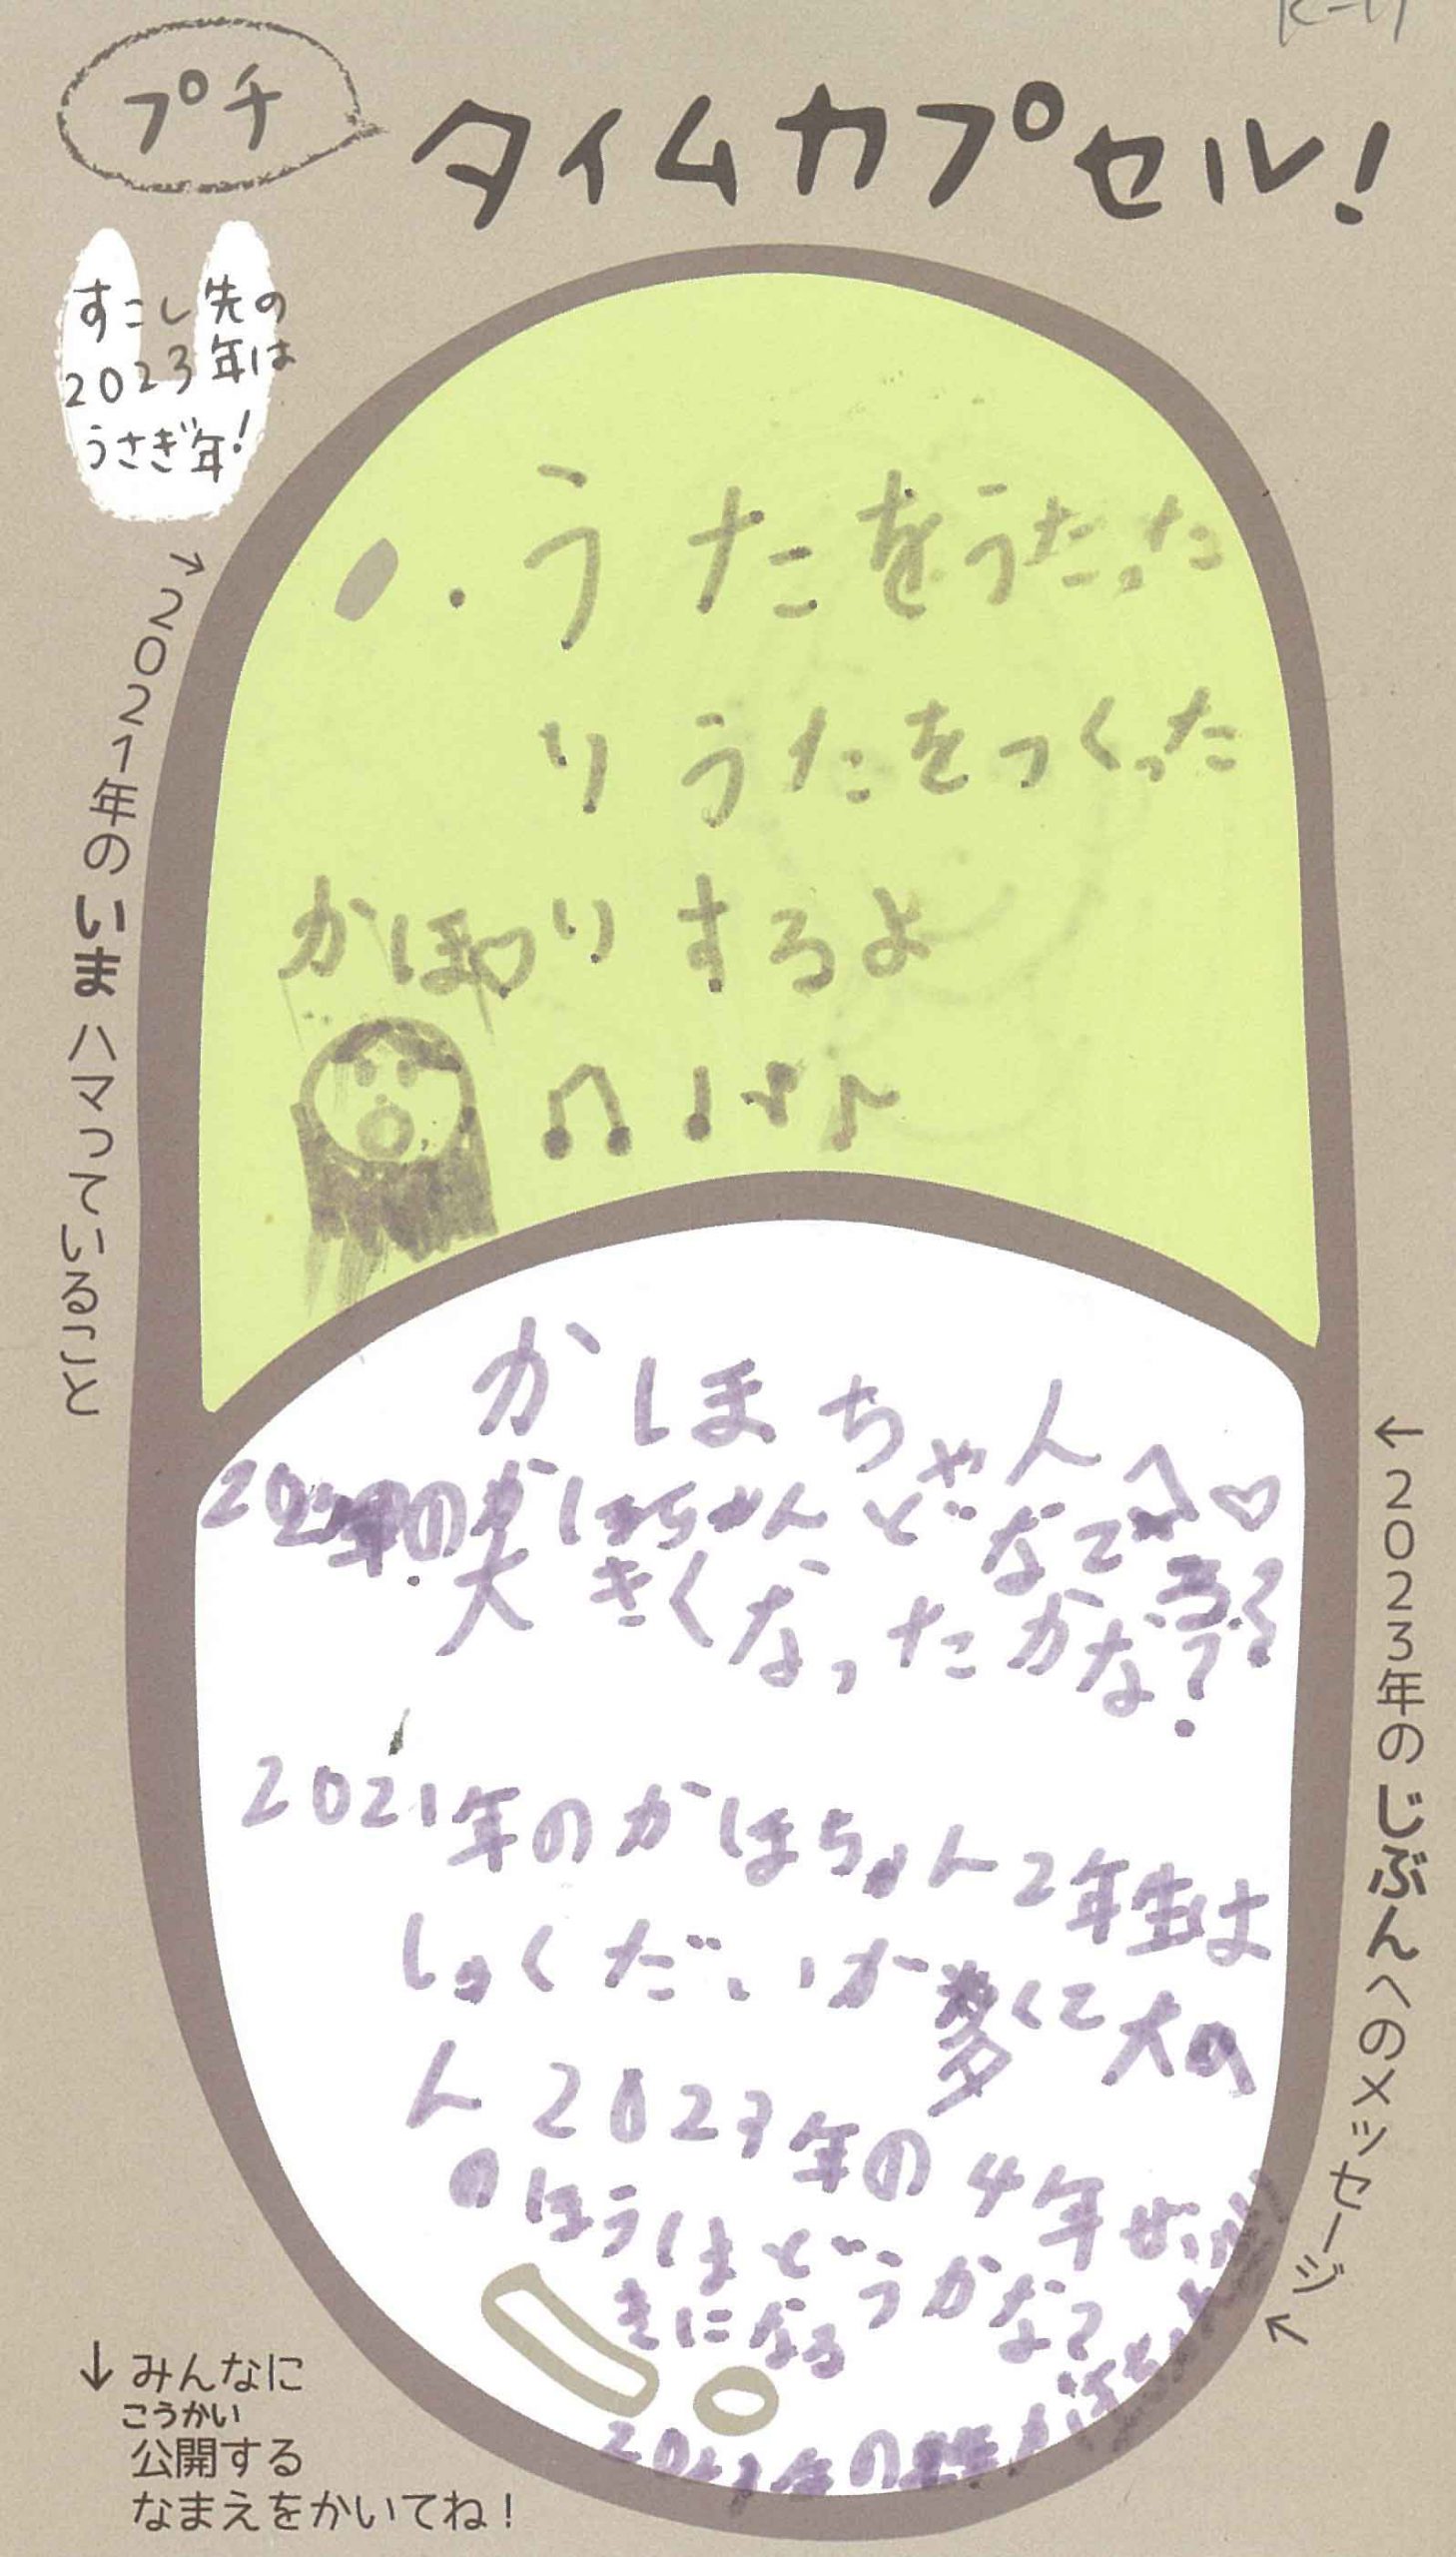 プチ
タイムカプセル!
すこし先の
2023年は
うさぎ年!
→2021年のいまハマっていること
・うたをうたった
りうたをつくった
りするよ
かほ♡
かほちゃんへ♡
の かほちゃん
大きくなったかな?
2021年のかほちゃん2年生は
しゅくだいが多くて大へ
ん2023年の4年
のほうはどうかな?
きになる
←2023年のじぶんへのメッセージ
↓みんなに
こうかい
公開する
なまえをかいてね!